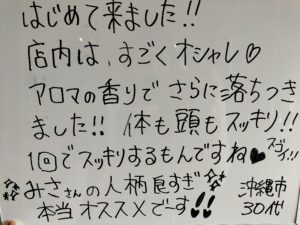 はじめて来ました!!
店内は、すごくオシャレ♡
アロマの香りで さらに落ちつき
ました!! 体も頭もスッキリ!!
1回でスッキリするもんですね♥スゴイ!!
みささんの人柄良すぎ
本当 オススメでーす!!
沖縄市
30代